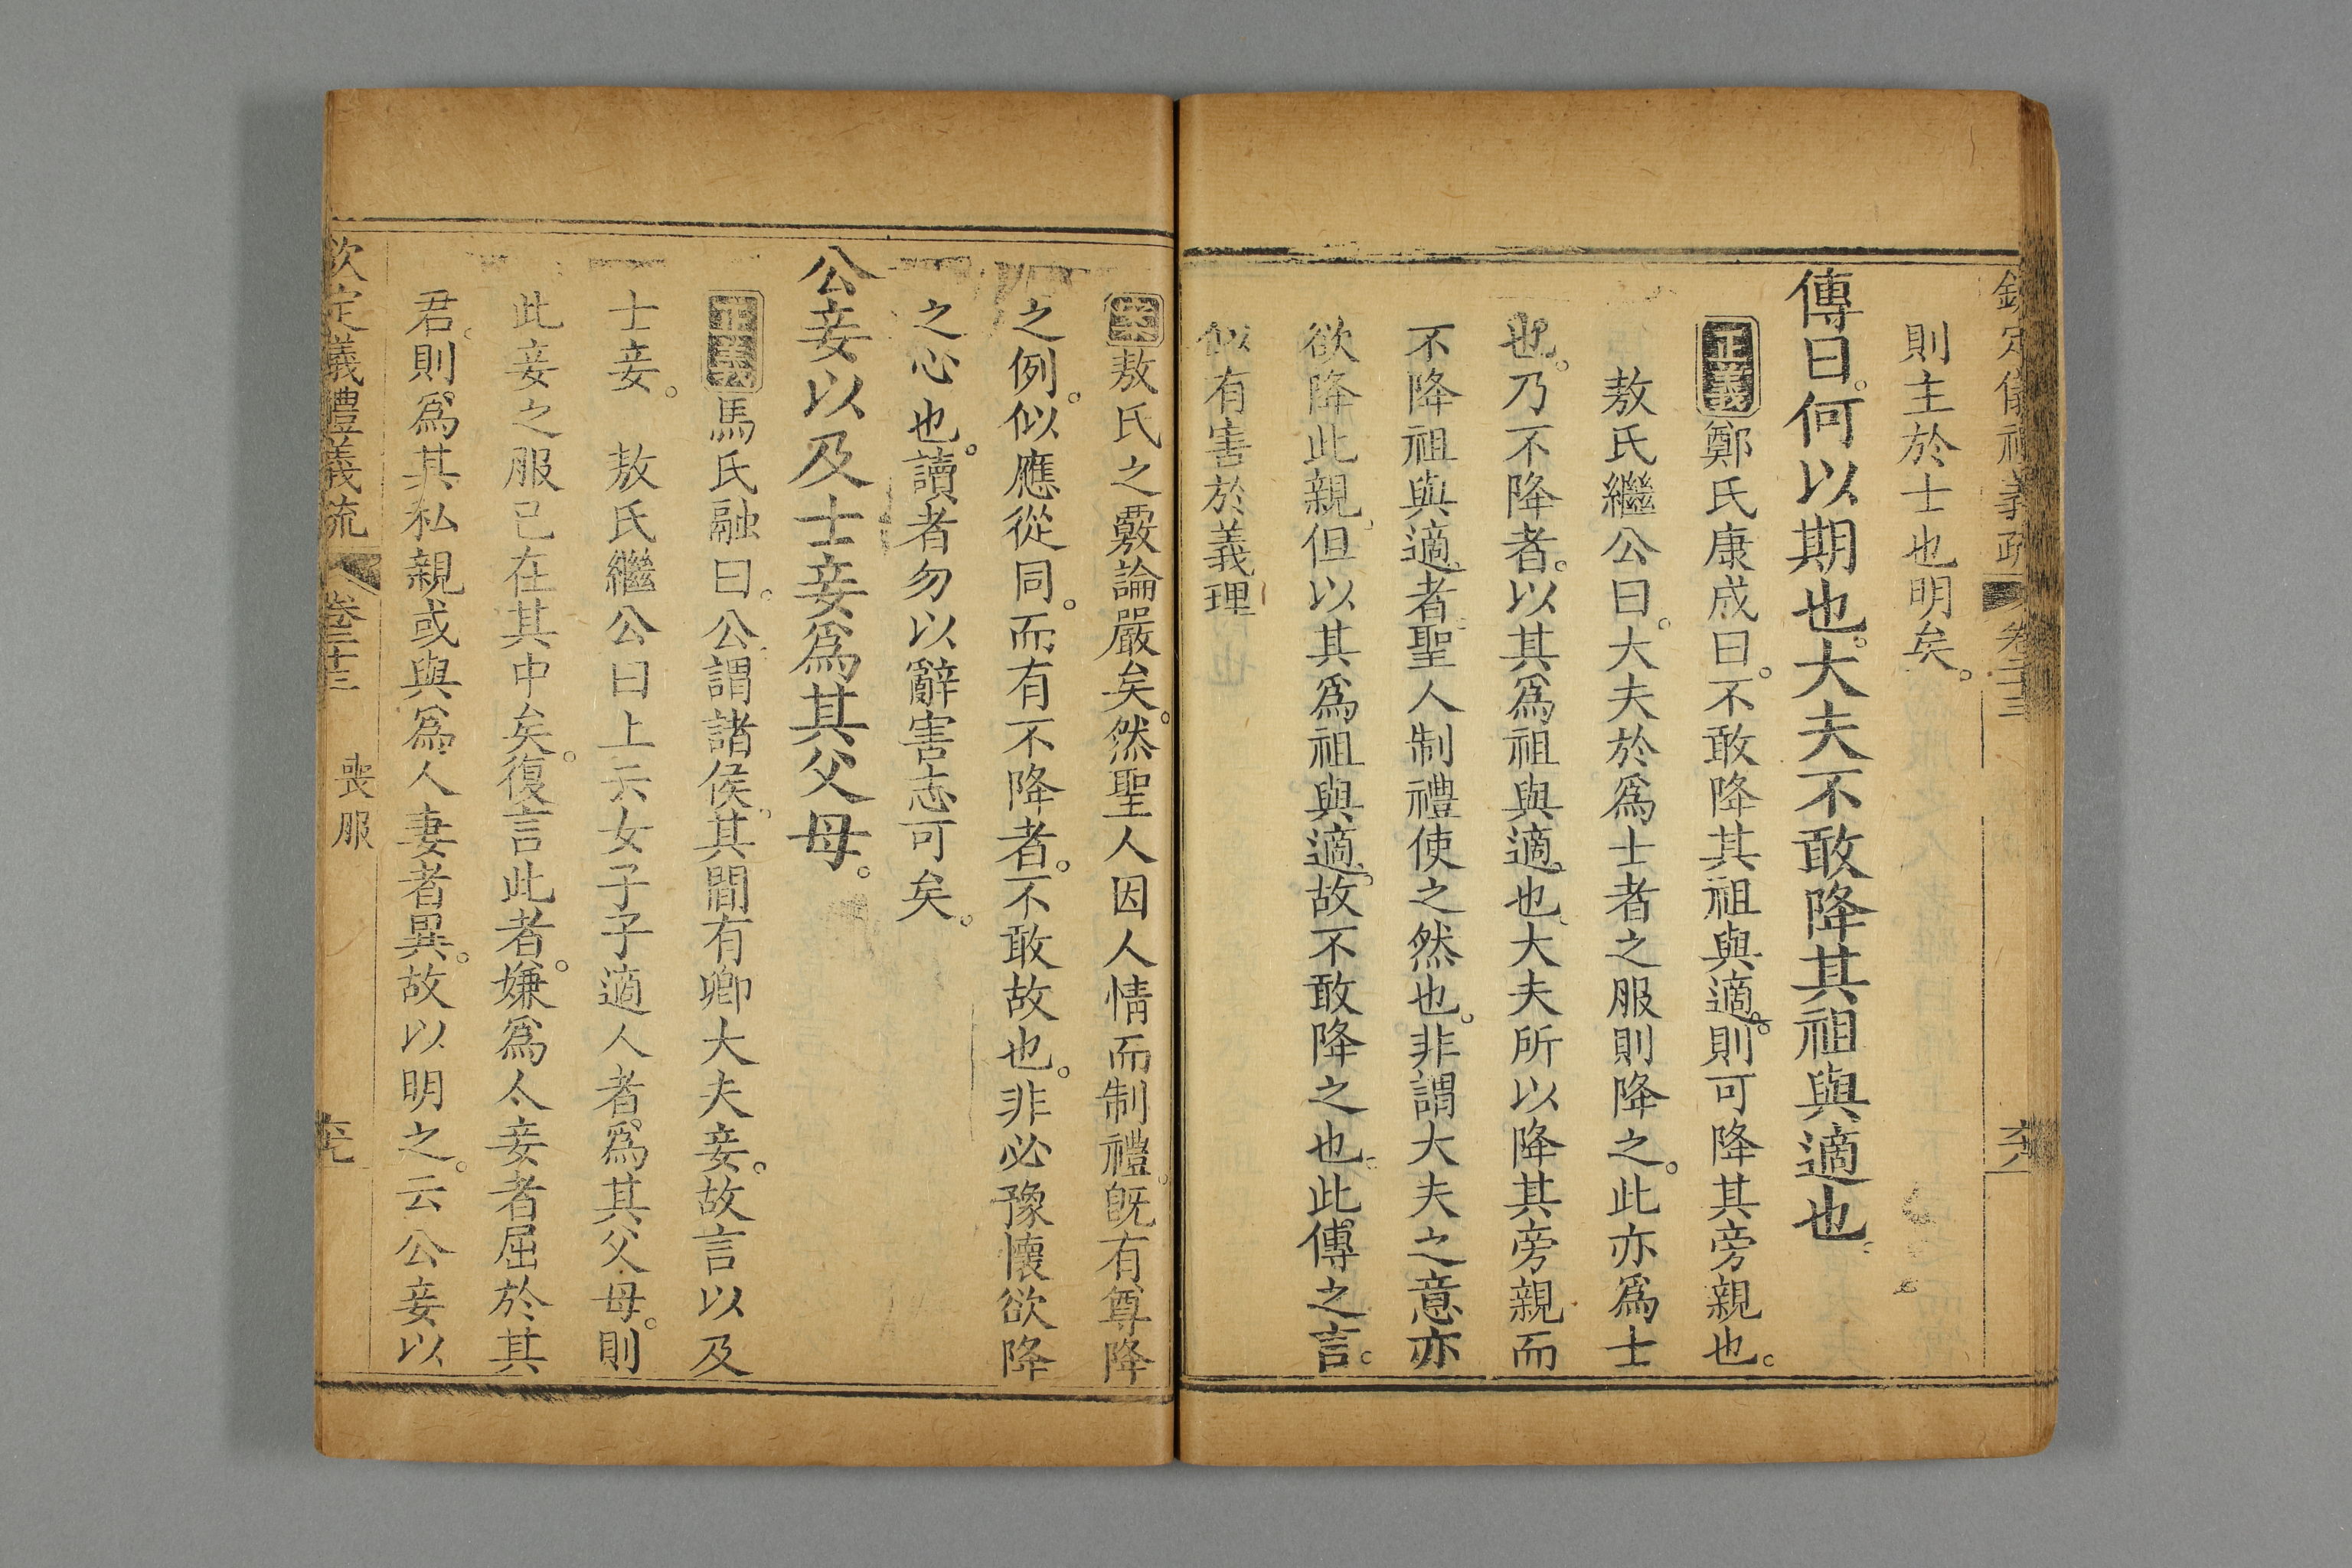 欽定儀禮義疏 卷二十三 六八
則主於士也明矣。
傳曰。何以期也。大夫不敢降其祖與適也。
正義鄭氏康成曰。不敢降其祖與適。則可降其旁親也。
敖氏繼公曰。大夫於爲士者之服則降之。此亦爲士
也。乃不降者。以其爲祖與適也。大夫所以降其旁親而
不降祖與適者。聖人制禮使之然也。非謂大夫之意亦
欲降此親。但以其爲祖與適。故不敢降之也。此傳之言。
似有害於義理
敖氏之覈論嚴矣。然聖人因人情而制禮。旣有尊降
之例。似應從同。而有不降者。不敢故也。非必豫懷欲降
之心也。讀者勿以辭害志可矣。
公妾以及士妾爲其父母。
正義馬氏融曰。公謂諸侯。其間有卿大夫妾。故言以及
士妾。 敖氏繼公曰上云女子子適人者。爲其父母。則
此妾之服已在其中矣。復言此者。嫌爲人妾者屈於其
君。則爲其私親或與爲人妻者異。故以明之。云公妾以
欽定義禮義疏 卷二十三 喪服